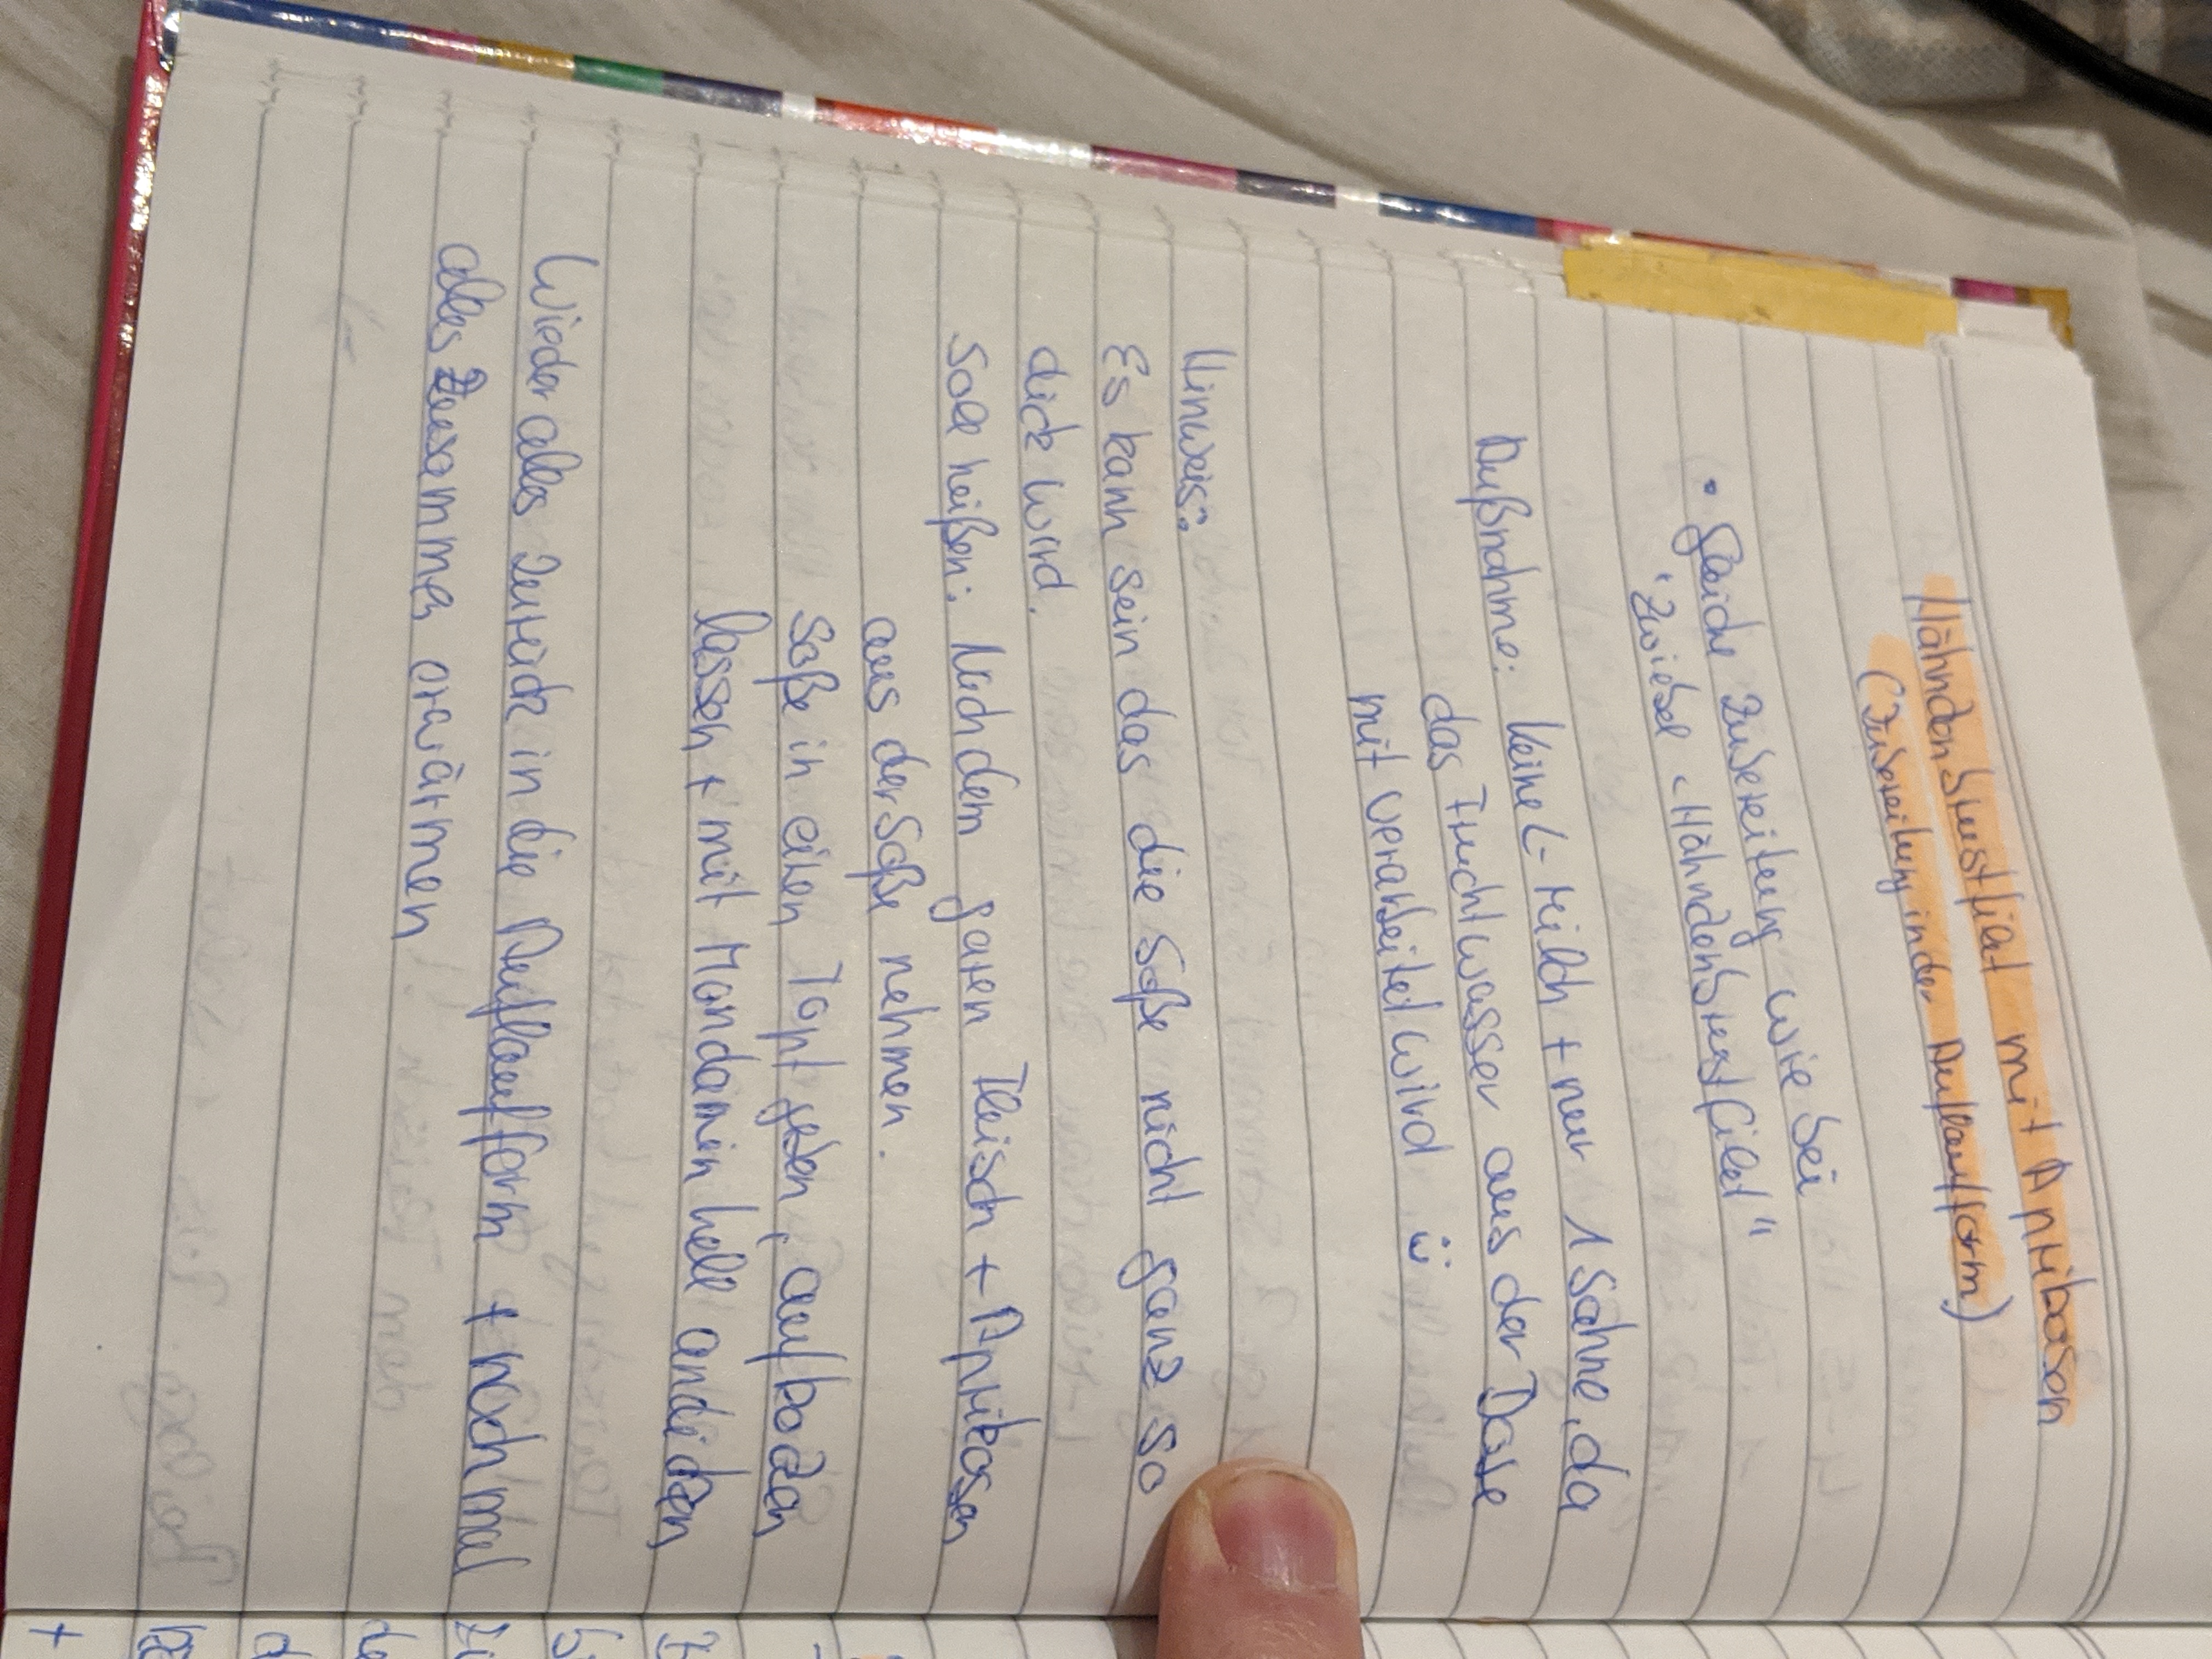 Hähnchenbrustfilet mit Aprikosen
(Zubereitung in der Auflaufform)
• gleiche Zubereitung wie bei
"Zwiebel-Hähnchenbrustfilet"
Außnahme: Keine L-Milch + nur 1 Sahne, da
das Fruchtwasser aus der Dose
mit verarbeitet wird ü
Hinweis:
Es kann sein das die Soße nicht ganz so
dick wird.
Soll heißen: Nach dem garen Fleisch + Aprikosen
aus der Soße nehmen.
Soße in einen Topf geben, aufkochen
lassen + mit Mondamin hell andicken
Wieder alles zurück in die Auflaufform + noch mal
alles zusammen erwärmen!